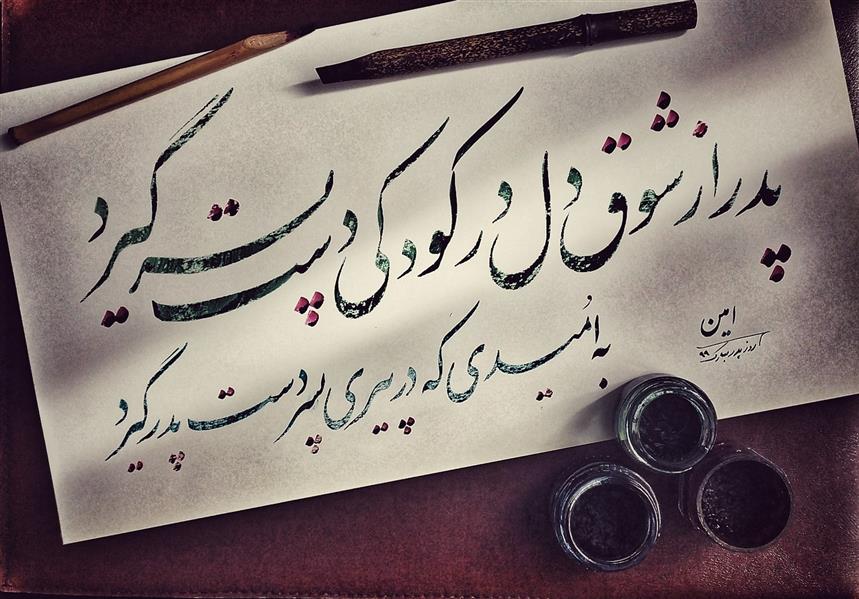 پدر از شوق دل در کودکی دست پسر گیرد
به اُمیدی که در پیری پسر دست پدر گیرد
امین
روز پدر مبارک